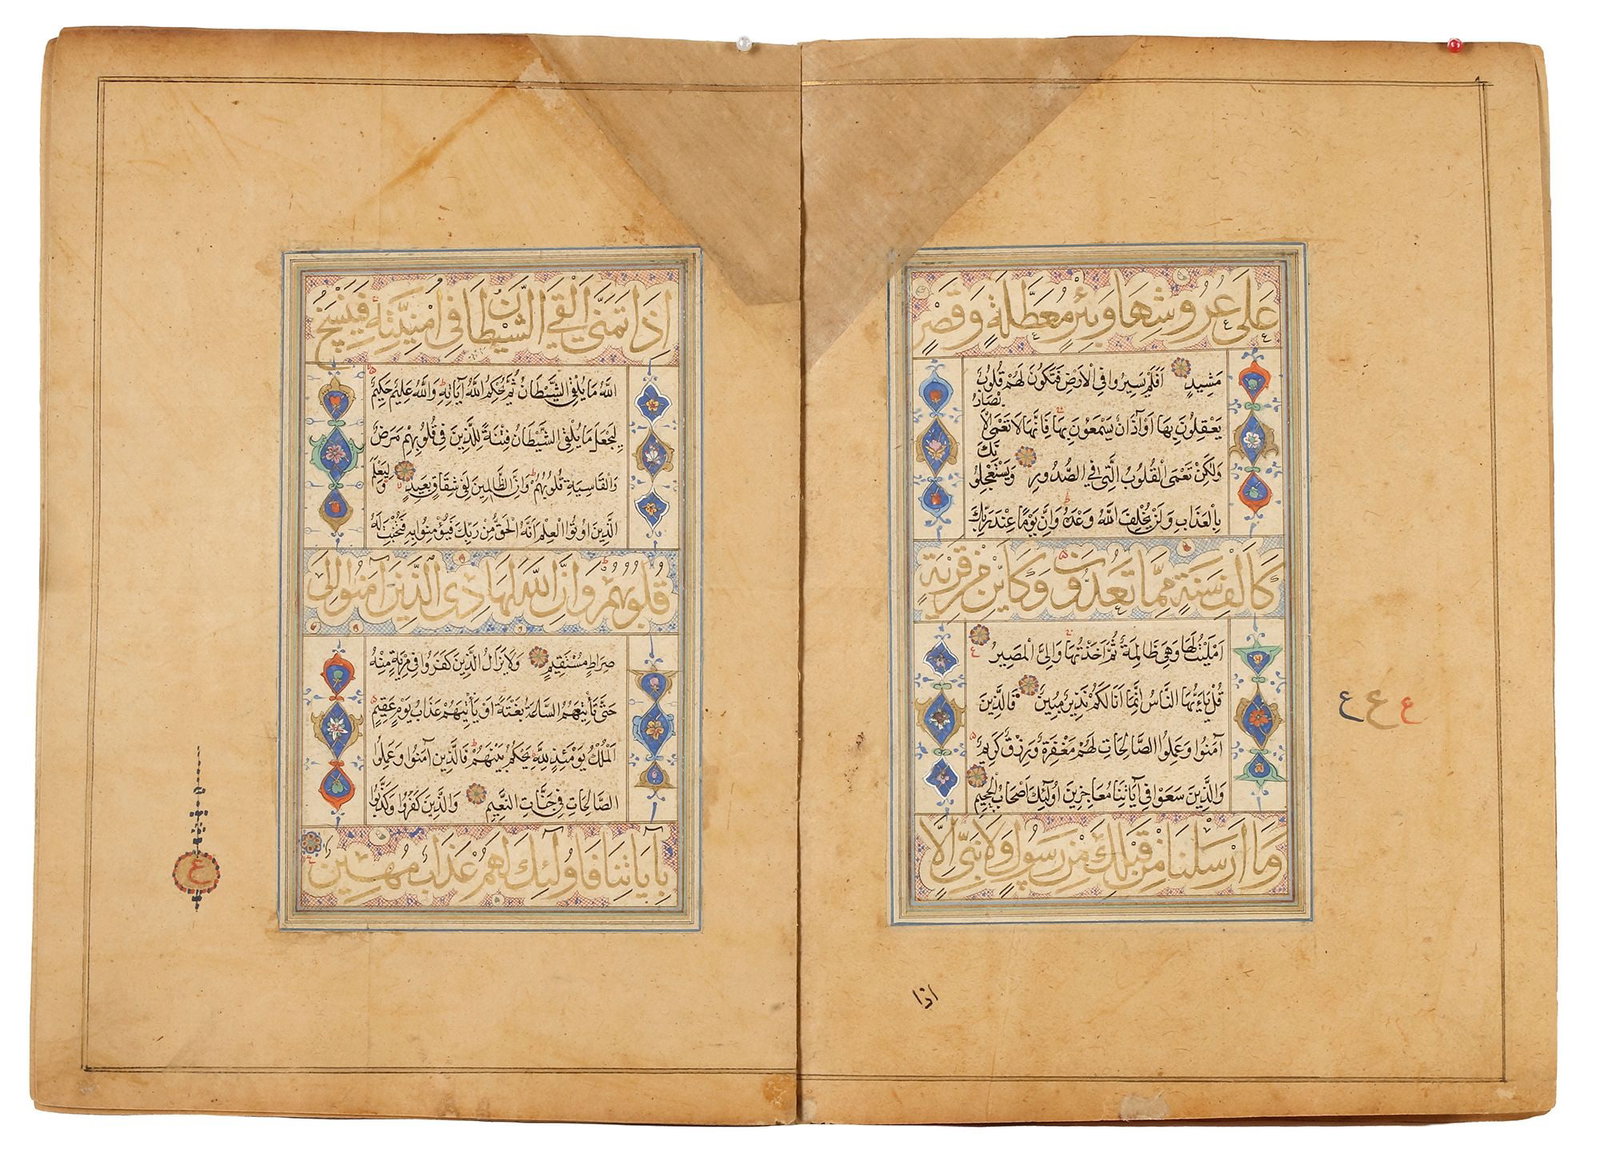 عَلٰى عُرُوشِهَا وَبِئْرٍ مُعَطَّلَةٍ وَقَصْرٍ
مَشِيدٍ اَفَلَمْ يَسِيرُوا فِي الْاَرْضِ فَتَكُونَ لَهُمْ قُلُوبٌ
يَعْقِلُونَ بِهَا اَوْ اٰذَانٌ يَسْمَعُونَ بِهَا فَاِنَّهَا لَا تَعْمَى الْاَبْصَارُ
وَلٰكِنْ تَعْمَى الْقُلُوبُ الَّتِي فِي الصُّدُورِ وَيَسْتَعْجِلُونَكَ
بِالْعَذَابِ وَلَنْ يُخْلِفَ اللّٰهُ وَعْدَهُ وَاِنَّ يَوْمًا عِنْدَ رَبِّكَ
كَاَلْفِ سَنَةٍ مِمَّا تَعُدُّونَ وَكَاَيِّنْ مِنْ قَرْيَةٍ
اَمْلَيْتُ لَهَا وَهِيَ ظَالِمَةٌ ثُمَّ اَخَذْتُهَا وَاِلَيَّ الْمَصِيرُ
قُلْ يَاءَيُّهَا النَّاسُ اِنَّمَا اَنَا لَكُمْ نَذِيرٌ مُبِينٌ فَالَّذِينَ
اٰمَنُوا وَعَمِلُوا الصَّالِحَاتِ لَهُمْ مَغْفِرَةٌ وَرِزْقٌ كَرِيمٌ
وَالَّذِينَ سَعَوْا فِي اٰيَاتِنَا مُعَاجِزِينَ اُولٰئِكَ اَصْحَابُ الْجَحِيمِ
وَمَا اَرْسَلْنَا مِنْ قَبْلِكَ مِنْ رَسُولٍ وَلَا نَبِيٍّ اِلَّا
ع ع ع
اذا
اِذَا تَمَنّٰى اَلْقَى الشَّيْطَانُ فِي اُمْنِيَّتِهِ فَيَنْسَخُ
اللّٰهُ مَا يُلْقِي الشَّيْطَانُ ثُمَّ يُحْكِمُ اللّٰهُ اٰيَاتِهِ وَاللّٰهُ عَلِيمٌ حَكِيمٌ
لِيَجْعَلَ مَا يُلْقِي الشَّيْطَانُ فِتْنَةً لِلَّذِينَ فِي قُلُوبِهِمْ مَرَضٌ
وَالْقَاسِيَةِ قُلُوبُهُمْ وَاِنَّ الظَّالِمِينَ لَفِي شِقَاقٍ بَعِيدٍ وَلِيَعْلَمَ
الَّذِينَ اُوتُوا الْعِلْمَ اَنَّهُ الْحَقُّ مِنْ رَبِّكَ فَيُؤْمِنُوا بِهِ فَتُخْبِتَ لَهُ
قُلُوبُهُمْ وَاِنَّ اللّٰهَ لَهَادِي الَّذِينَ اٰمَنُوا اِلٰى
صِرَاطٍ مُسْتَقِيمٍ وَلَا يَزَالُ الَّذِينَ كَفَرُوا فِي مِرْيَةٍ مِنْهُ
حَتّٰى تَأْتِيَهُمُ السَّاعَةُ بَغْتَةً اَوْ يَأْتِيَهُمْ عَذَابُ يَوْمٍ عَقِيمٍ
اَلْمُلْكُ يَوْمَئِذٍ لِلّٰهِ يَحْكُمُ بَيْنَهُمْ فَالَّذِينَ اٰمَنُوا وَعَمِلُوا
الصَّالِحَاتِ فِي جَنَّاتِ النَّعِيمِ وَالَّذِينَ كَفَرُوا وَكَذَّبُوا
بِاٰيَاتِنَا فَاُولٰئِكَ لَهُمْ عَذَابٌ مُهِينٌ
ع